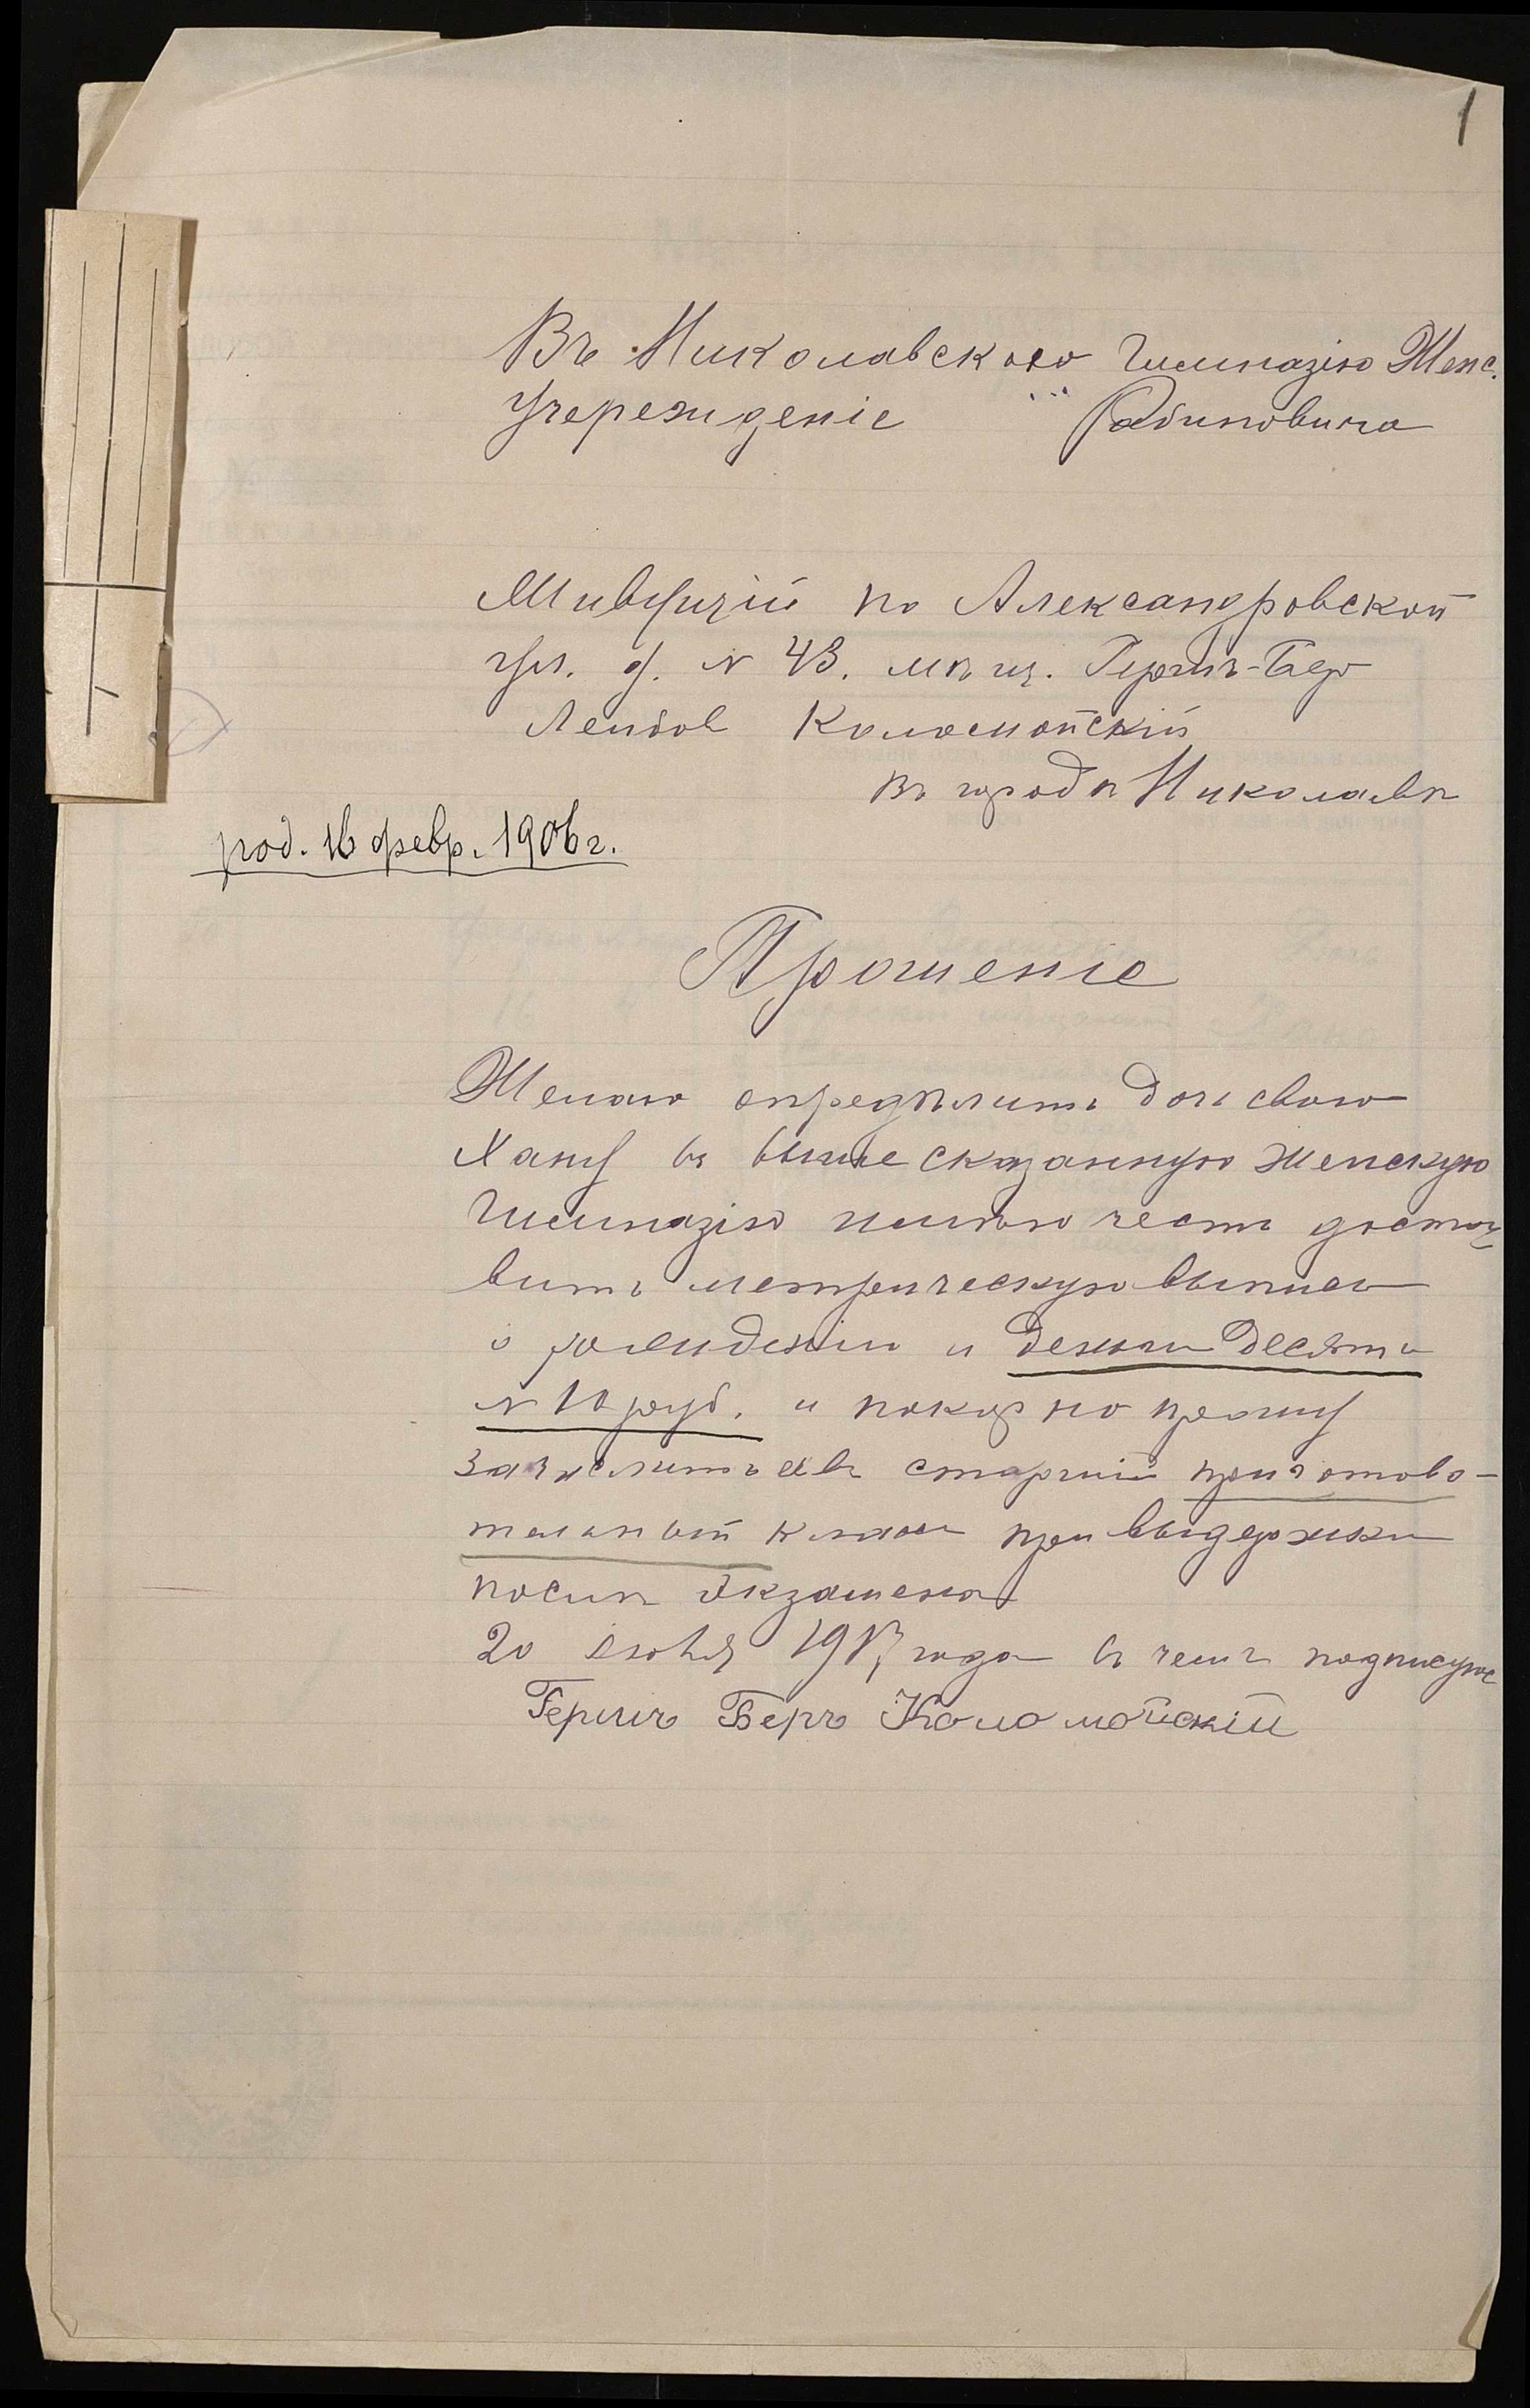 1
Въ Николавского Гимназію Женс.
Учереждение Рабиновича
Живущій по Александровской
ул. д. N 43. мѣщ. Гершъ-Бер
Лейбов Коломойскій
въ городѣ Николаевѣ
род. 16 февр. 1906 г.
Прошеніе
Желаю опредѣлить дочь свою
Хану въ выше сказанную женскую
Гимназію имѣю честь доста
вить метрическую выпись
о рождении и деньги Десять
N 10 руб. и покорно прошу
зачислить ев старший приготови-
тельный классъ при выдержки
послѣ экзамена
20 года въ чемъ подписуюс
Гершъ Беръ Коломойскій